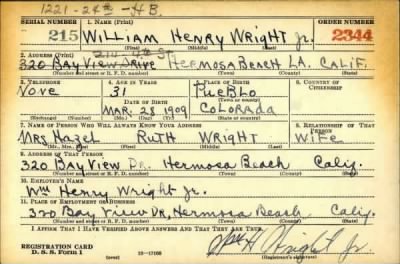 1221-24th-H.B.
SERIAL NUMBER 1. NAME (Print) ORDER NUMBER
215 WILLIAM HENRY WRIGHT Jr. 2344
(First) (Middle) (Last)
2. ADDRESS (Print)
320 BAY VIEW DRIVE HERMOSA BEACH LA. CALIF.
(Number and street or R. F. D. number) (Town) (County) (State)
3. TELEPHONE 4. AGE IN YEARS 5. PLACE OF BIRTH 6. COUNTRY OF CITIZENSHIP
NONE 31 PUEBLO
DATE OF BIRTH
MAR 28 1909 COLORADA
(Exchange) (Number) (Mo.) (Day) (Yr.) (State or country)
7. NAME OF PERSON WHO WILL ALWAYS KNOW YOUR ADDRESS 8. RELATIONSHIP OF THAT PERSON
MRS Hazel RUTH WRIGHT WIFE
(Mr., Mrs., Miss) (First) (Middle) (Last)
9. ADDRESS OF THAT PERSON
320 BAY VIEW Dr. Hermosa Beach Calif.
(Number and street or R. F. D. number) (Town) (County) (State)
10. EMPLOYER'S NAME
Wm Henry Wright Jr.
11. PLACE OF EMPLOYMENT OR BUSINESS
320 Bay View Dr, Hermosa Beach Calif.
(Number and street or R. F. D. number) (Town) (County) (State)
I AFFIRM THAT I HAVE VERIFIED ABOVE ANSWERS AND THAT THEY ARE TRUE.
REGISTRATION CARD
D. S. S. Form 1 (over) Wm H Wright Jr
(Registrant's signature)